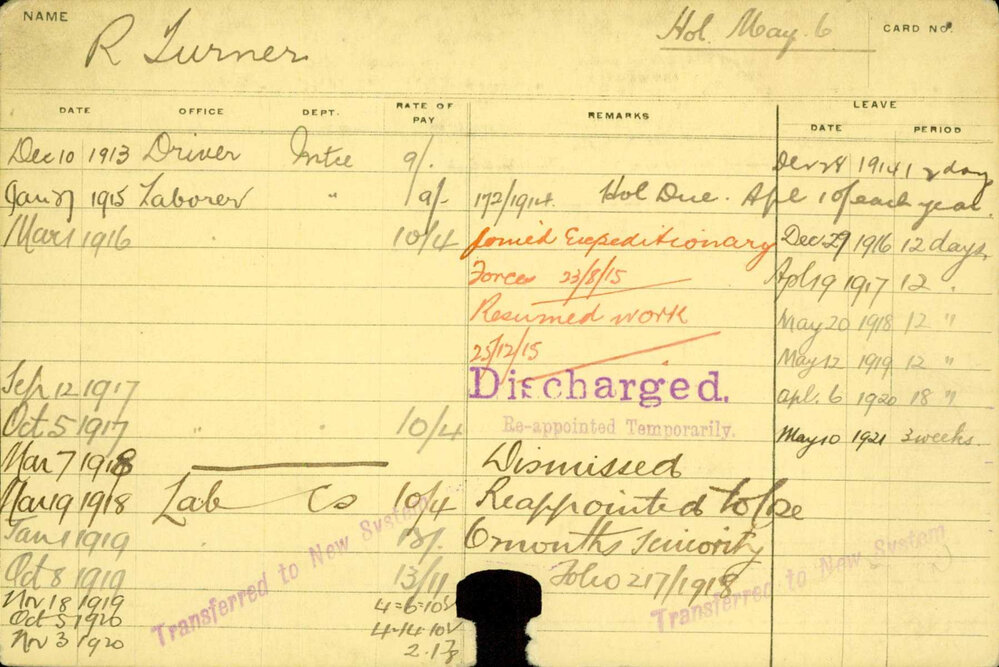 NAME R Turner Hol. May. 6 CARD NO.
DATE OFFICE DEPT. RATE OF PAY REMARKS LEAVE
DATE PERIOD
Dec 10 1913 Driver Mtce 9/. Dec 28 1914 12 days
Jan 27 1915 Laborer " 9/- 172/1914. Hol Due. Apl 10 of each year.
Mar 1 1916 10/4 Joined Expeditionary Dec 29 1916 12 days
Forces 23/8/15 Apl 19 1917 12 "
Resumed work May 20 1918 12 "
25/12/15 May 12 1919 12 "
Sep 12 1917 Discharged. apl. 6 1920 18 "
Oct 5 1917 " 10/4 Re-appointed Temporarily. May 10 1921 3 weeks.
Mar 7 1918 Dismissed
Mar 19 1918 Lab Cs 10/4 Reappointed to lose
Jan 1 1919 13/. 6 months Seniority
Oct 8 1919 13/11 Folio 217/1918
Transferred to New System
Transferred to New System
Nov 18 1919 4=6=10
Oct 5 1920 4-14-10
Nov 3 1920